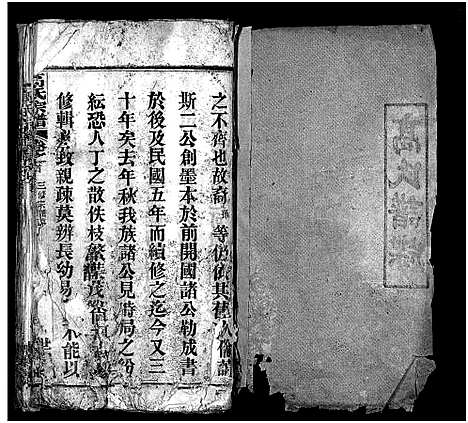 之不齊也故裔等仍依其舊
斯二公創墨本於前開國諸公勒成書
於後及民國五年而續修之迄今又三
十年矣去年秋我族諸公見時局之紛
紜恐人丁之散佚枝繁葉茂
修輯焉致親疎莫辨長幼易不能以
高氏宗譜 卷之首